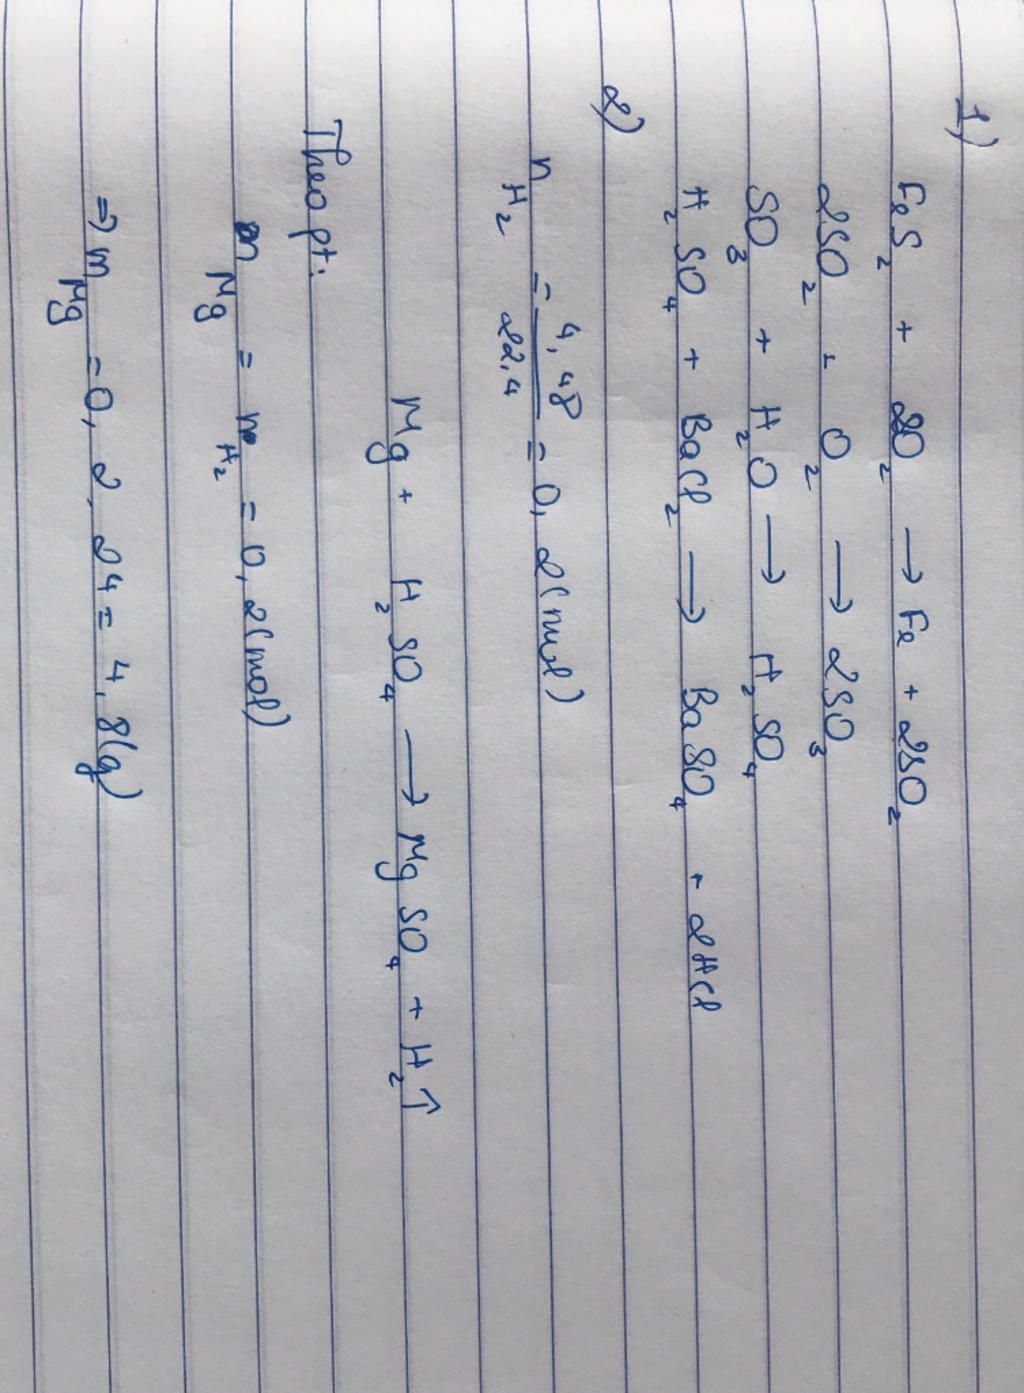 1)
FeS₂ + 2O₂ → Fe + 2SO₂
2SO₂ + O₂ → 2SO₃
SO₃ + H₂O → H₂SO₄
H₂SO₄ + BaCl₂ → BaSO₄ + 2HCl
2)
n H₂ = 4,48 / 22,4 = 0,2 (mol)
Mg + H₂SO₄ → MgSO₄ + H₂↑
Theo pt:
n Mg = n H₂ = 0,2 (mol)
⇒ m Mg = 0,2 . 24 = 4,8 (g)